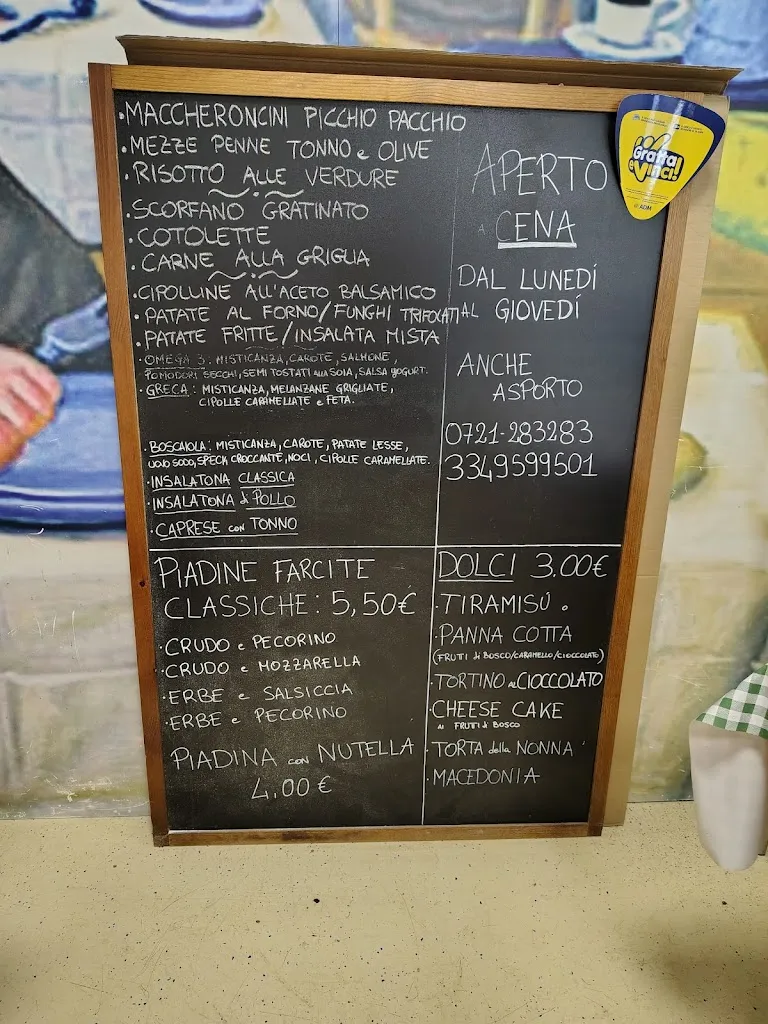 •MACCHERONCINI PICCHIO PACCHIO
•MEZZE PENNE TONNO e OLIVE
•RISOTTO ALLE VERDURE
•SCORFANO GRATINATO
•COTOLETTE
•CARNE ALLA GRIGLIA
•CIPOLLINE ALL'ACETO BALSAMICO
•PATATE AL FORNO/FUNGHI TRIFOLATI
•PATATE FRITTE/INSALATA MISTA
•OMEGA 3: MISTICANZA, CAROTE, SALMONE,
POMODORI SECCHI, SEMI TOSTATI ALLA SOIA, SALSA YOGURT.
•GRECA: MISTICANZA, MELANZANE GRIGLIATE,
CIPOLLE CARAMELLATE e FETA.
•BOSCAIOLA: MISTICANZA, CAROTE, PATATE LESSE,
UOVO SODO, SPECK CROCCANTE, NOCI, CIPOLLE CARAMELLATE.
•INSALATONA CLASSICA
•INSALATONA di POLLO
•CAPRESE con TONNO
APERTO
A CENA
DAL LUNEDÍ
AL GIOVEDÍ
ANCHE
ASPORTO
0721-283283
3349599501
Gratta
e Vinci!
ADM
PIADINE FARCITE
CLASSICHE: 5,50€
•CRUDO e PECORINO
•CRUDO e MOZZARELLA
•ERBE e SALSICCIA
•ERBE e PECORINO
PIADINA con NUTELLA
4,00€
DOLCI 3.00€
•TIRAMISÚ
•PANNA COTTA
(FRUTTI di BOSCO/CARAMELLO/CIOCCOLATO)
•TORTINO al CIOCCOLATO
•CHEESE CAKE
ai FRUTTI di BOSCO
•TORTA della NONNA
•MACEDONIA